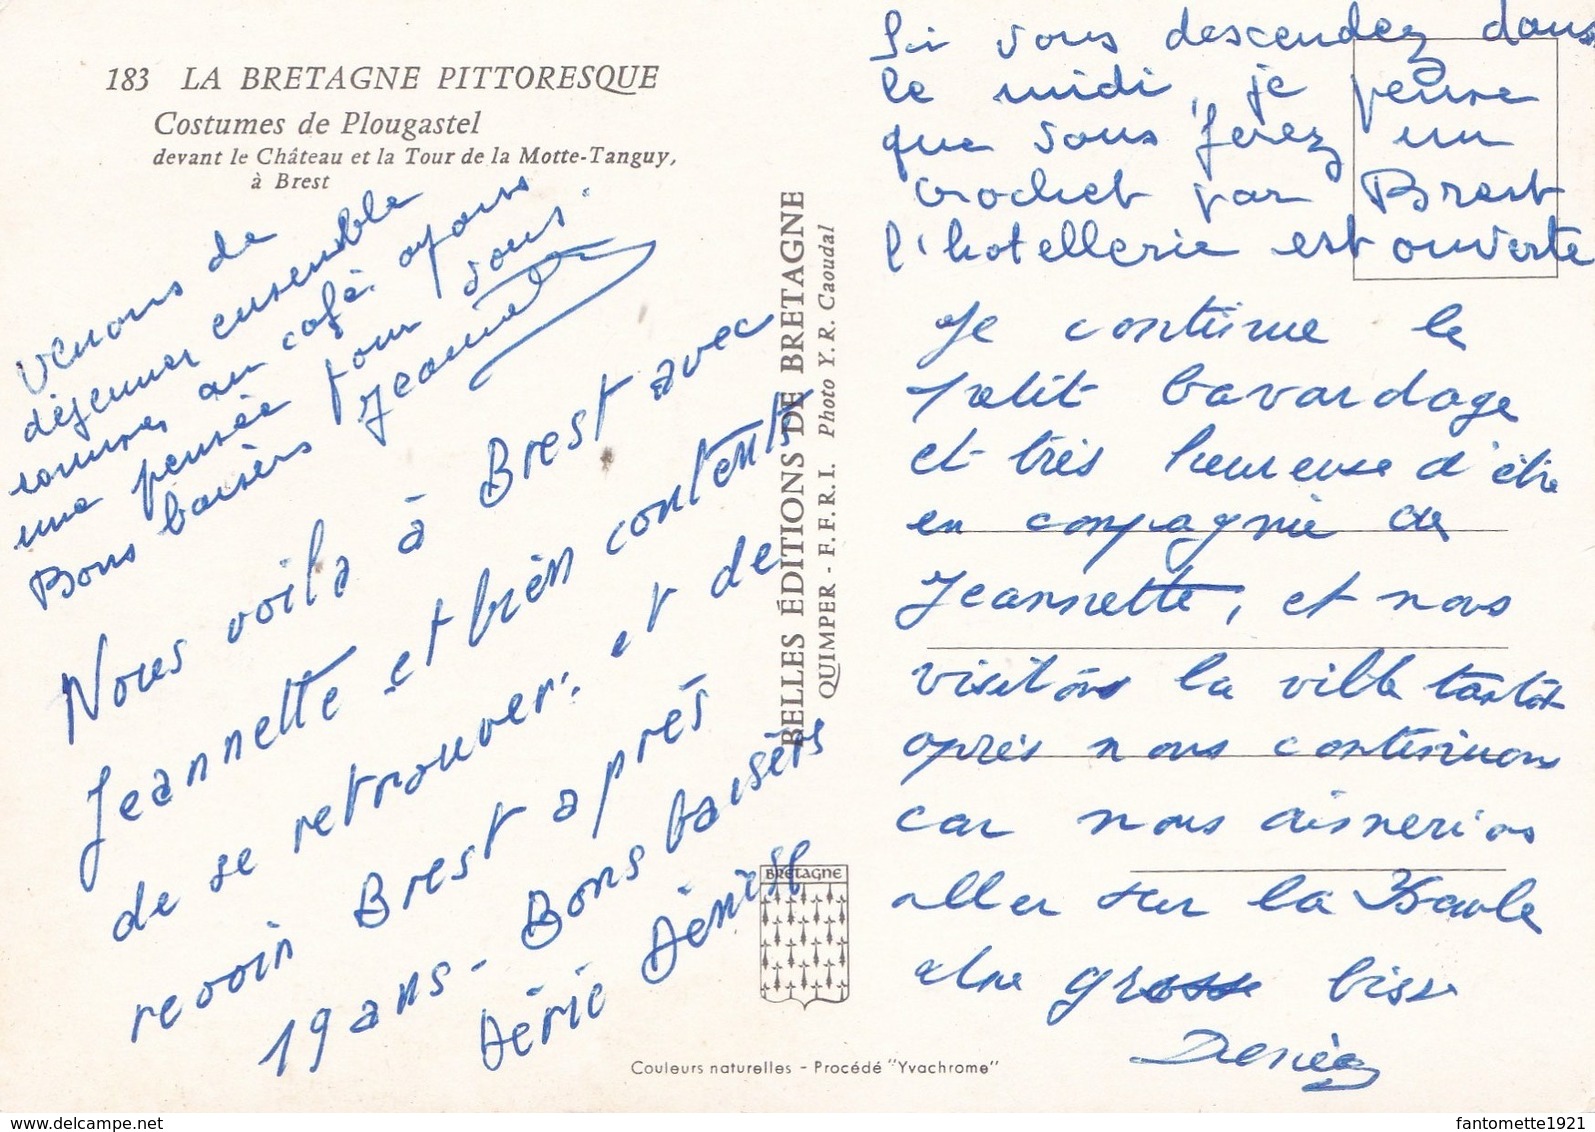 183 LA BRETAGNE PITTORESQUE
Costumes de Plougastel
devant le Château et la Tour de la Motte-Tanguy,
à Brest
Venons de
déjeuner ensemble
sommes au café. ayons
une pensée pour vous.
Bons baisers Jeannette
Nous voilà à Brest avec
Jeannette et bien contents
de se retrouver. et de
revoir Brest après
19 ans - Bons baisers
Aéric Dénise
BELLES ÉDITIONS DE BRETAGNE
QUIMPER - F.F.R.I. Photo Y.R. Caoudal
Si vous descendez dans
le midi, je pense
que vous ferez un
crochet par Brest
l'hotellerie est ouverte
Je continue le
petit bavardage
et très heureuse d'être
en compagnie de
Jeannette, et nous
visitons la ville tantôt
après nous continuons
car nous aimerions
aller sur la Baule
une grosse bise
BRETAGNE
Couleurs naturelles - Procédé "Yvachrome"
www.delcampe.net
fantomette1921